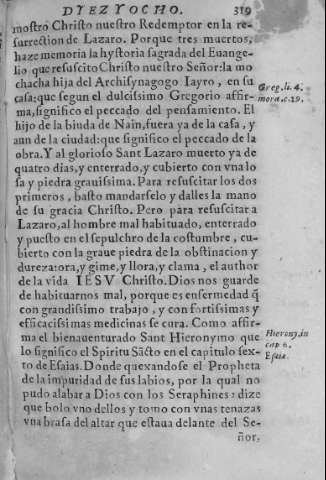 DIEZ Y OCHO. 319
mostro Christo nuestro Redemptor en la re-
surrection de Lazaro. Porque tres muertos,
haze memoria la hystoria sagrada del Euange-
lio que resuscito Christo nuestro Señor: la mo
chacha hija del Archisynagogo Iayro, en su
casa: que segun el dulcissimo Gregorio affir-
ma, significo el peccado del pensamiento. El
hijo de la biuda de Nain, fuera ya de la casa, y
aun de la ciudad: que significo el peccado de la
obra. Y al glorioso Sant Lazaro muerto ya de
quatro dias, y enterrado, y cubierto con vna lo
sa y piedra grauissima. Para resuscitar los dos
primeros, basto mandarselo y dalles la mano
de su gracia Christo. Pero para resuscitar a
Lazaro, al hombre mal habituado, enterrado
y puesto en el sepulchro de la costumbre, cu-
bierto con la graue piedra de la obstinacion y
dureza: ora, y gime, y llora, y clama, el author
de la vida IESV Christo. Dios nos guarde
de habituarnos mal, porque es enfermedad q̃
con grandissimo trabajo, y con fortissimas y
efficacissimas medicinas se cura. Como affir-
ma el bienauenturado Sant Hieronymo que
lo significo el Spiritu Sãcto en el capitulo sex-
to de Esaias. Donde quexandose el Propheta
de la impuridad de sus labios, por la qual no
pudo alabar a Dios con los Seraphines: dize
que bolo vno dellos y tomo con vnas tenazas
vna brasa del altar que estaua delante del Se-
ñor.
Greg. li. 4.
mora. c. 29.
Hierony. in
cap 6.
Esaie.